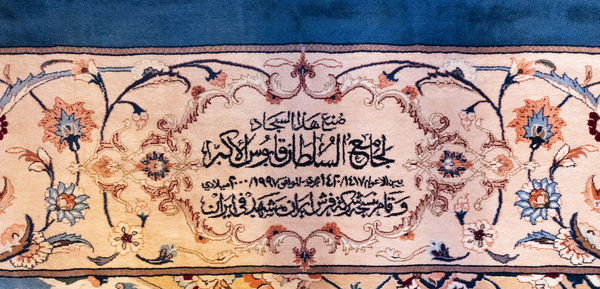 صنع هذا السجاد
لجامع السلطان قابوس الأكبر
بين الأعوام ١٤١٧/١٤٢٠ هجري الموافق ١٩٩٧/٢٠٠٠ ميلادي
وقام بنسجه شركة فرش ايران مشهد في ايران